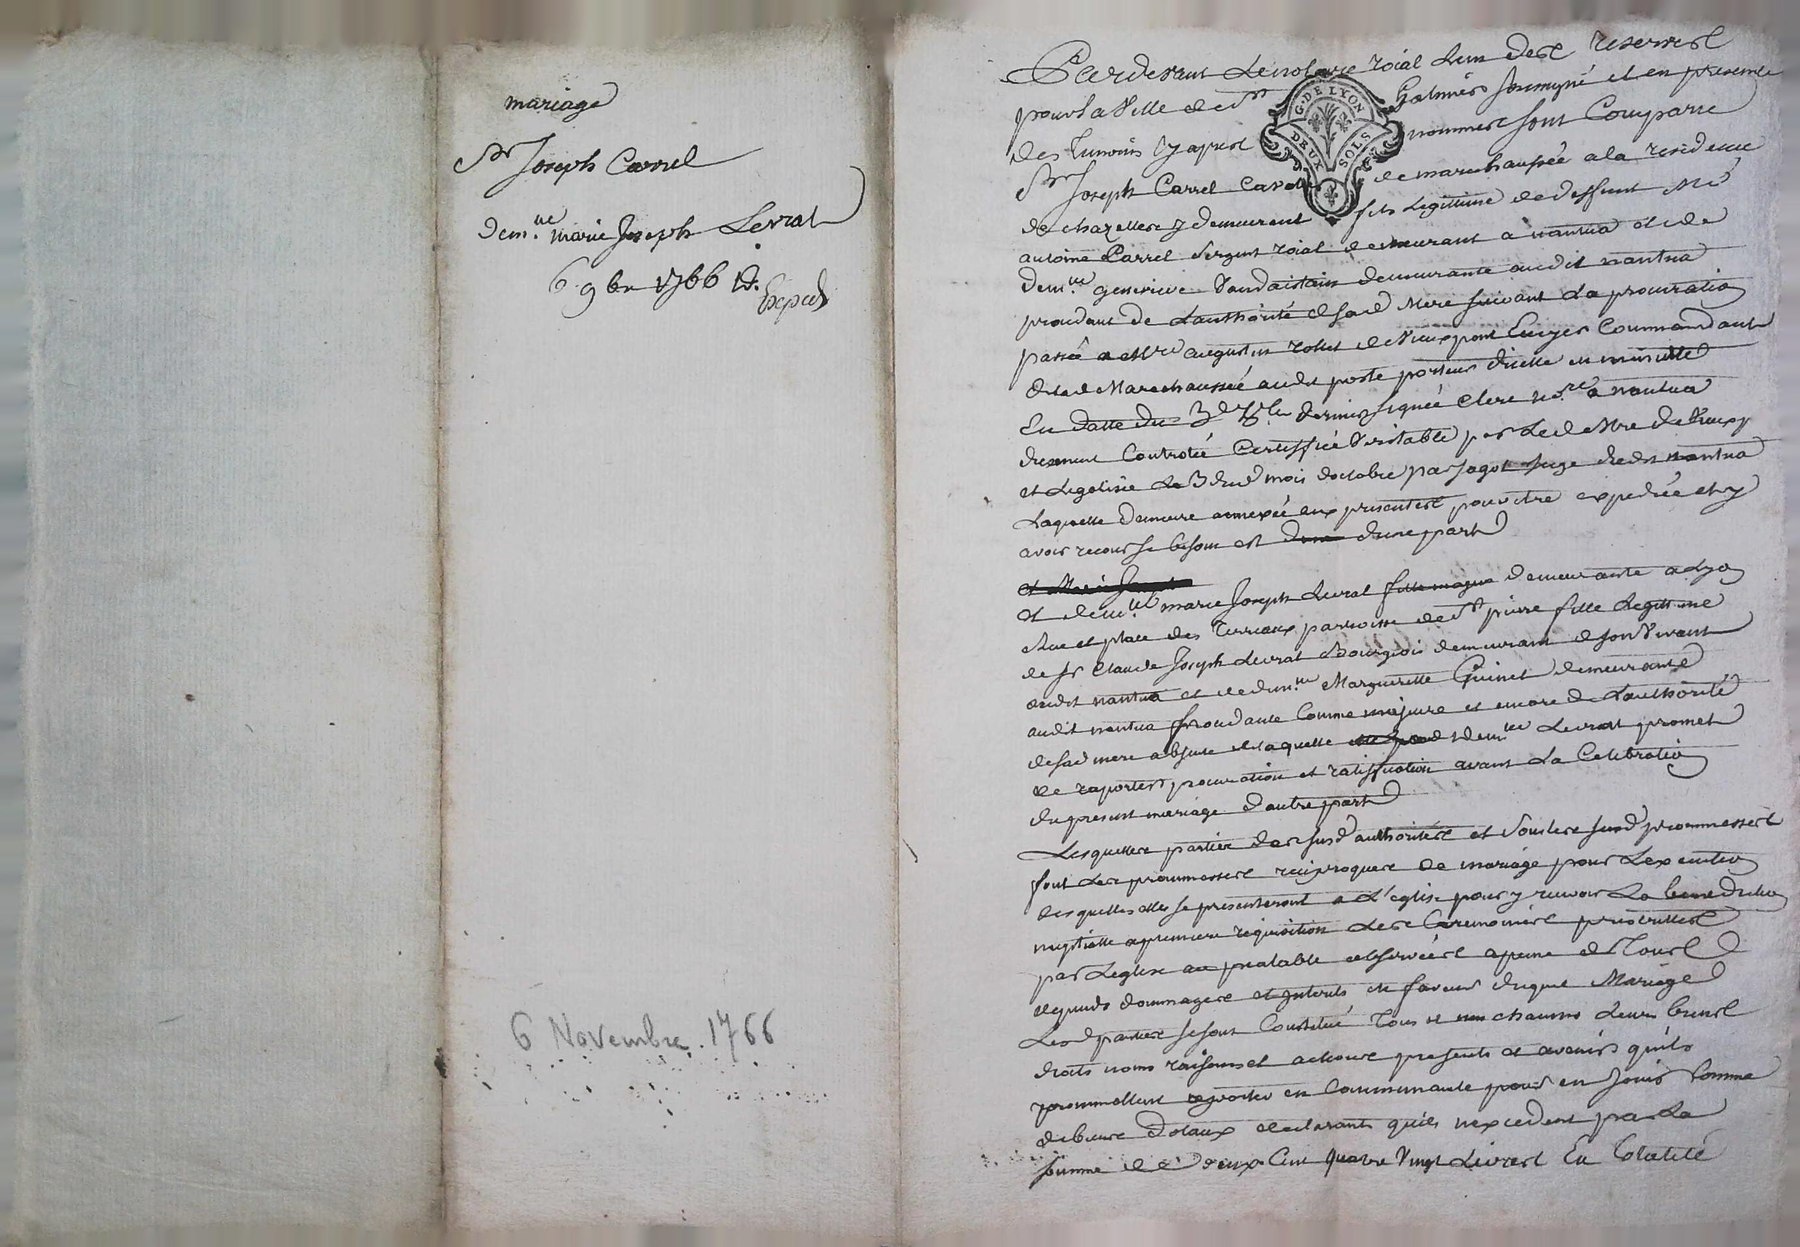 mariage
Sr Joseph Carrel
Dem.lle marie Joseph Levrat
6 9bre 1766
Exped
6 Novembre. 1766
G. DE LYON
DEUX SOLS
Pardevant Le notaire roial L'un des reservés
pour la Ville de St Galmier soussigné et en presence
des Temoins Cy apres nommés sont Comparu
Sr Joseph Carrel Cavalier de marechaussée a la residence
de chazelles y demeurant fils Legittime de deffunt Me
antoine Carrel sergent roial demeurant a nantua et de
dem.lle genevieve demeurante audit nantua
procedant de L'authorité de sad mere suivant La procuration
passée a Mre augustin rolet de Vieuxpont Ecuyer Commandant
de Marechaussée audit poste porteur d'icelle en minutte
En datte du 3e dernier signée Clerc no.re a nantua
duement Controlée Certiffiée Veritable par Led Mre de Vieuxp
et Legalisée Le 3 dud mois d'octobre par Jagot Juge dudit nantua
Laquelle demeure annexée aux presentes pour etre expediée et y
avoir recours si besoin est d'une part
et Marie Joseph
et dem.lle marie Joseph Levrat fille mageure demeurante a Lyon
Rue et place des Terreaux parroisse de St pierre fille Legittime
de Sr Claude Joseph Levrat Bourgeois demeurant de son Vivant
audit nantua et de dem.lle Marguerite Guinet demeurante
audit nantua procedante Comme majeure et encore de L'authorité
de sad mere absente de laquelle lad dem.lle Levrat promet
de raporter procuration et ratiffication avant La Celebration
du present mariage d'autre part
Lesquelles parties des susd authorités et sous les susd promesses
font Les promesses reciproques de mariage pour L'execution
desquelles elles se presenteront a L'eglise pour y recevoir La benediction
nuptialle a premiere requisition Les Ceremonies prescrittes
par L'eglise au prealable observées a peine de Tous
depends dommages et interets en faveur duquel Mariage
Les d parties se sont Constitué Tous et chacuns Leurs biens
droits noms raisons et actions presents et avenir qu'ils
promettent aporter en Communauté pour en Jouir Comme
de biens dotaux declarants qu'ils n'excedent pas La
somme de deux Cent quatre Vingt Livres En totalité